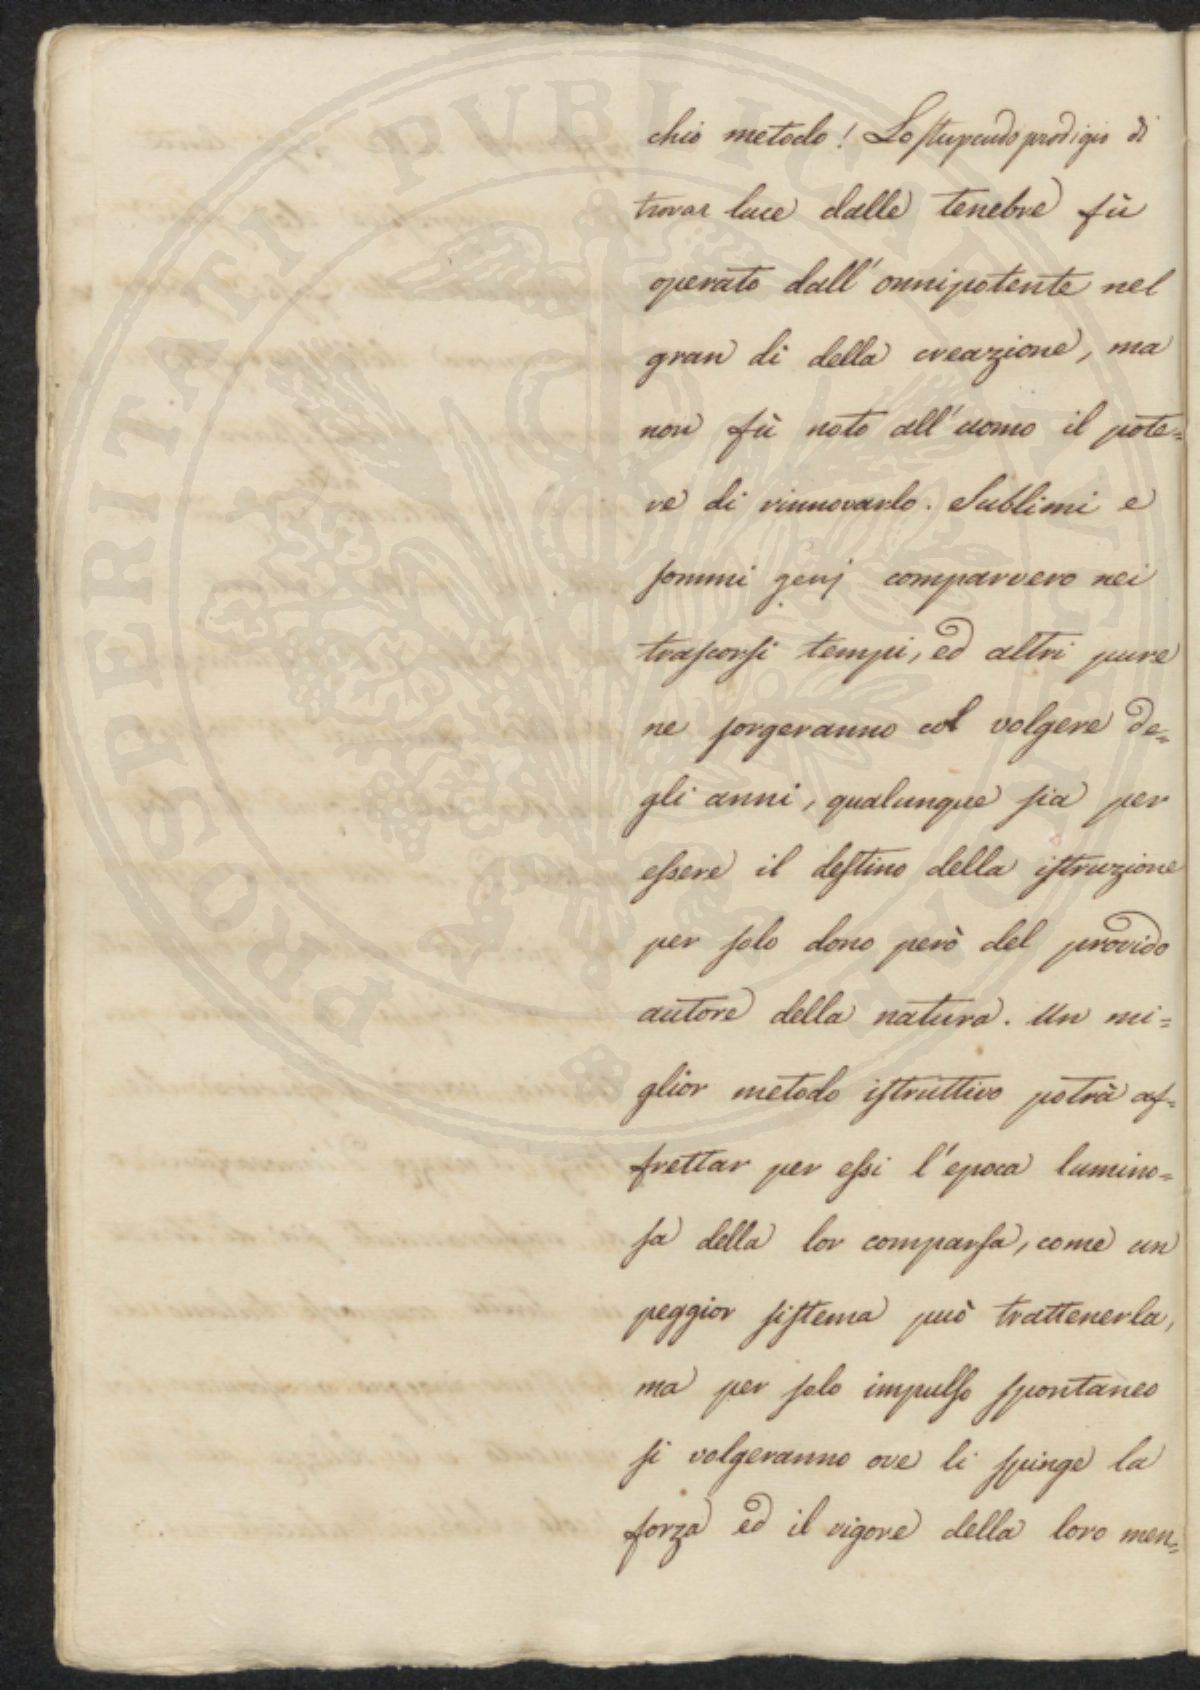 chio metodo! Lo stupendo prodigio di
trovar luce dalle tenebre fù
operato dall'onnipotente nel
gran di della creazione, ma
non fù noto all'uomo il pote=
re di rinnovarlo. Sublimi e
sommi genj comparvero nei
trascorsi tempi, ed altri pure
ne sorgeranno col volgere de=
gli anni, qualunque sia per
essere il destino della istruzione
per solo dono però del provido
autore della natura. Un mi=
glior metodo istruttivo potrà af=
frettar per essi l'epoca lumino=
sa della lor comparsa, come un
peggior sistema può trattenerla,
ma per solo impulso spontaneo
si volgeranno ove li spinge la
forza ed il vigore della loro men=
PROSPERITATI PUBLICAE AUGENDAE